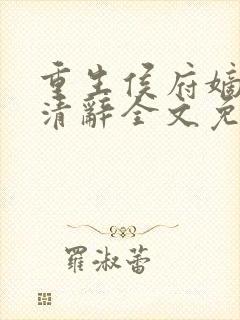 重生侯府嫡
清辭全文免
羅淑蕾